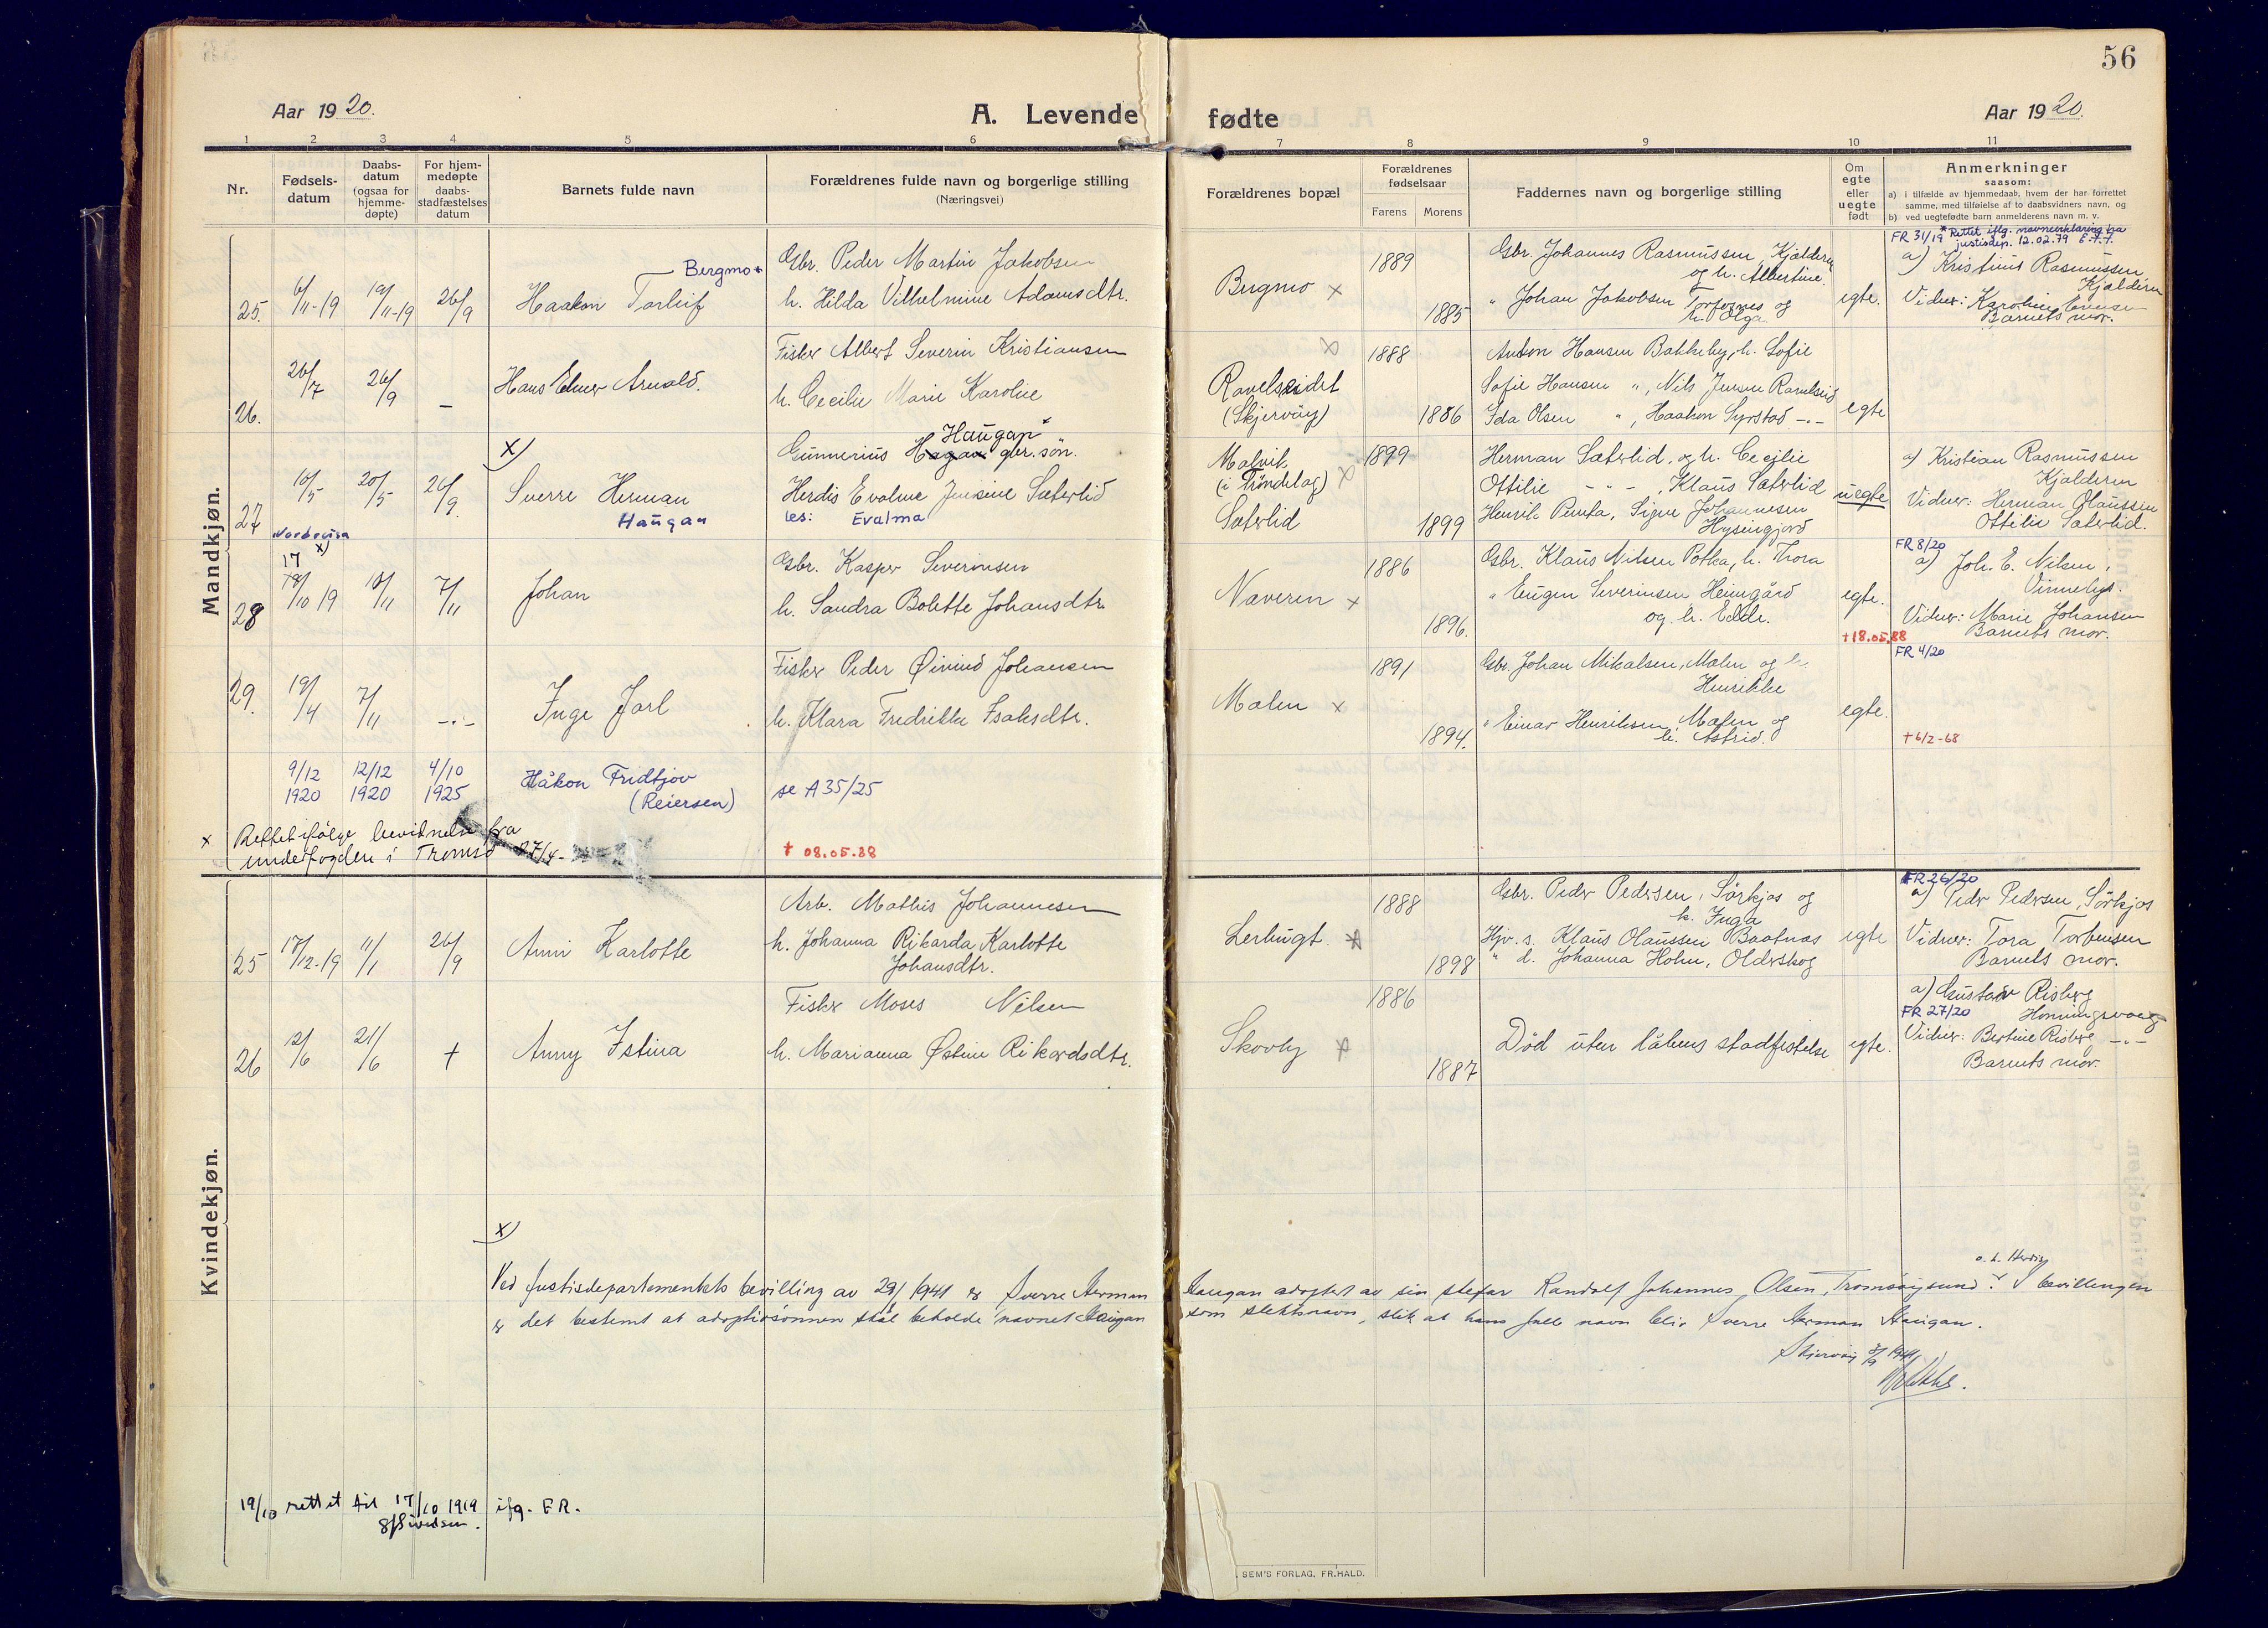 56
Aar 1920.
A. Levende
fødte
Aar 1920.
1 2 3 4 5 6
7 8 9 10 11
Nr.
Fødsels-
datum
Daabs-
datum
(ogsaa for
hjemme-
døpte)
For hjem-
medøpte
daabs-
stadfæstelses
datum
Barnets fulde navn
Forældrenes fulde navn og borgerlige stilling
(Næringsvei)
Forældrenes bopæl
Forældrenes
fødselsaar
Farens Morens
Faddernes navn og borgerlige stilling
Om
egte
eller
uegte
født
Anmerkninger
saasom:
a) i tilfælde av hjemmedaab, hvem der har forrettet
samme, med tilføielse af to daabsvidners navn, og
b) ved uegtefødte barn anmelderens navn m. v.
Mandkjøn.
25.
6/11-19
19/11-19
26/9
Bergmo*
Haakon Torleif
Gbr. Peder Martin Jakobsen
h. Hilda Vilhelmine Adamsdtr.
Bergmo x
1889
1885
Gbr. Johannes Rasmussen, Kjelderen
og h. Albertine.
" Johan Jakobsen Torfosnes og
h. Olga
egte.
FR 31/19 * Rettet iflg. navneerklæring fra
justisdep. 12.02.79
a) Kristine Rasmussen
Kjelderen
Vidner: Karoline
Barnets mor.
26.
26/7
26/9
—
Hans Elmer Arnald.
Fisker Albert Severin Kristiansen
h. Cecilie Marie Karoline
Ravelseidet
(Skjervøy)
1888
1886
Anton Hansen Bakkeby, h. Sofie
Sofie Hansen ", Nils Jensen Ravelseid
Ida Olsen ", Haakon Syrstad -.-
egte
27
10/5
20/5
26/9.
Nordreisa
x)
Sverre Herman
Haugan
Haugan
Gunnerius Hagan gbr. søn.
Herdis Evaline Jensine Sæterlid
les: Evalma
Malvik
(i Trøndelag)
Sæterlid
1899
1899
Herman Sæterlid, og h. Cecilie
Ottilie - " - , Klaus Sæterlid
Henrik Penta, Signe Johannesen
Hysingjord
uegte
a) Kristian Rasmussen
Kjelderen
Vidner: Herman Olaussen
Ottilie Sæterlid.
28
17 x)
19/10 19
10/11
7/11
Johan
Gbr. Kasper Severinsen
h. Sandra Bolette Johansdtr.
Naveren x
1886
1896.
Gbr. Klaus Nilsen Potka, h. Thora
" Eugen Severinsen Heimgård
og. h. Edle.
egte.
+18.05.88
FR 8/20
a) Joh. E. Nilsen,
Vinnelys.
Vidner: Marie Johansen
Barnets mor.
29.
19/4
7/11
-.-
Inge Jarl
Fisker Peder Øivind Johansen
h. Klara Fredrikke Isaksdtr.
Malen x
1891
1894.
Gbr. Johan Mikalsen, Malen og h.
Henrikke
" Einar Henriksen, Malen og
h. Astrid.
egte.
FR 4/20
+6/2-68
9/12
1920
12/12
1920
4/10
1925
Håkon Fridtjov
(Reiersen)
se A 35/25
x Rettet ifølge bevidnelse fra
underfogden i Tromsø 27/4-
+ 08.05.88
Kvindekjøn.
25
17/12-19
11/1
26/9
Anni Karlotte
Arb. Mathis Johannesen
h. Johanna Rikarda Karlotte
Johansdtr.
Lerbugt.
1888
1898
Gbr. Peder Pedersen, Sørkjos og
h. Inga
Hjv. s. Klaus Olaussen Baatnes
" d. Johanna Holm, Olderskog
egte
FR 26/20
a) Peder Pedersen, Sørkjos
Vidner: Tora Torbensen
Barnets mor.
26
2/6
21/6
+
Anny Istina
Fisker Moses Nilsen
h. Marianna Østine Rikardsdtr.
Skovly
1886
1887
Død uten dåbens stadfestelse
egte.
a) Gustav Risberg
FR 27/20 Honningsvaag
Vidner: Bertine Risberg -.-
Barnets mor.
x)
Ved Justisdepartementets bevilling av 29/1 1941 er Sverre Herman Haugan adoptert av sin stefar Randolf Johannes Olsen, Tromsøysund. I bevillingen
er det bestemt at adoptivsønnen skal beholde navnet Haugan som slektsnavn, slik at hans fulle navn blir Sverre Herman Haugan.
Skjervøy 3/9 1941
19/10 rettet til 17/10 1919 ifg. F.R.
SEM'S FORLAG, FR.HALD.